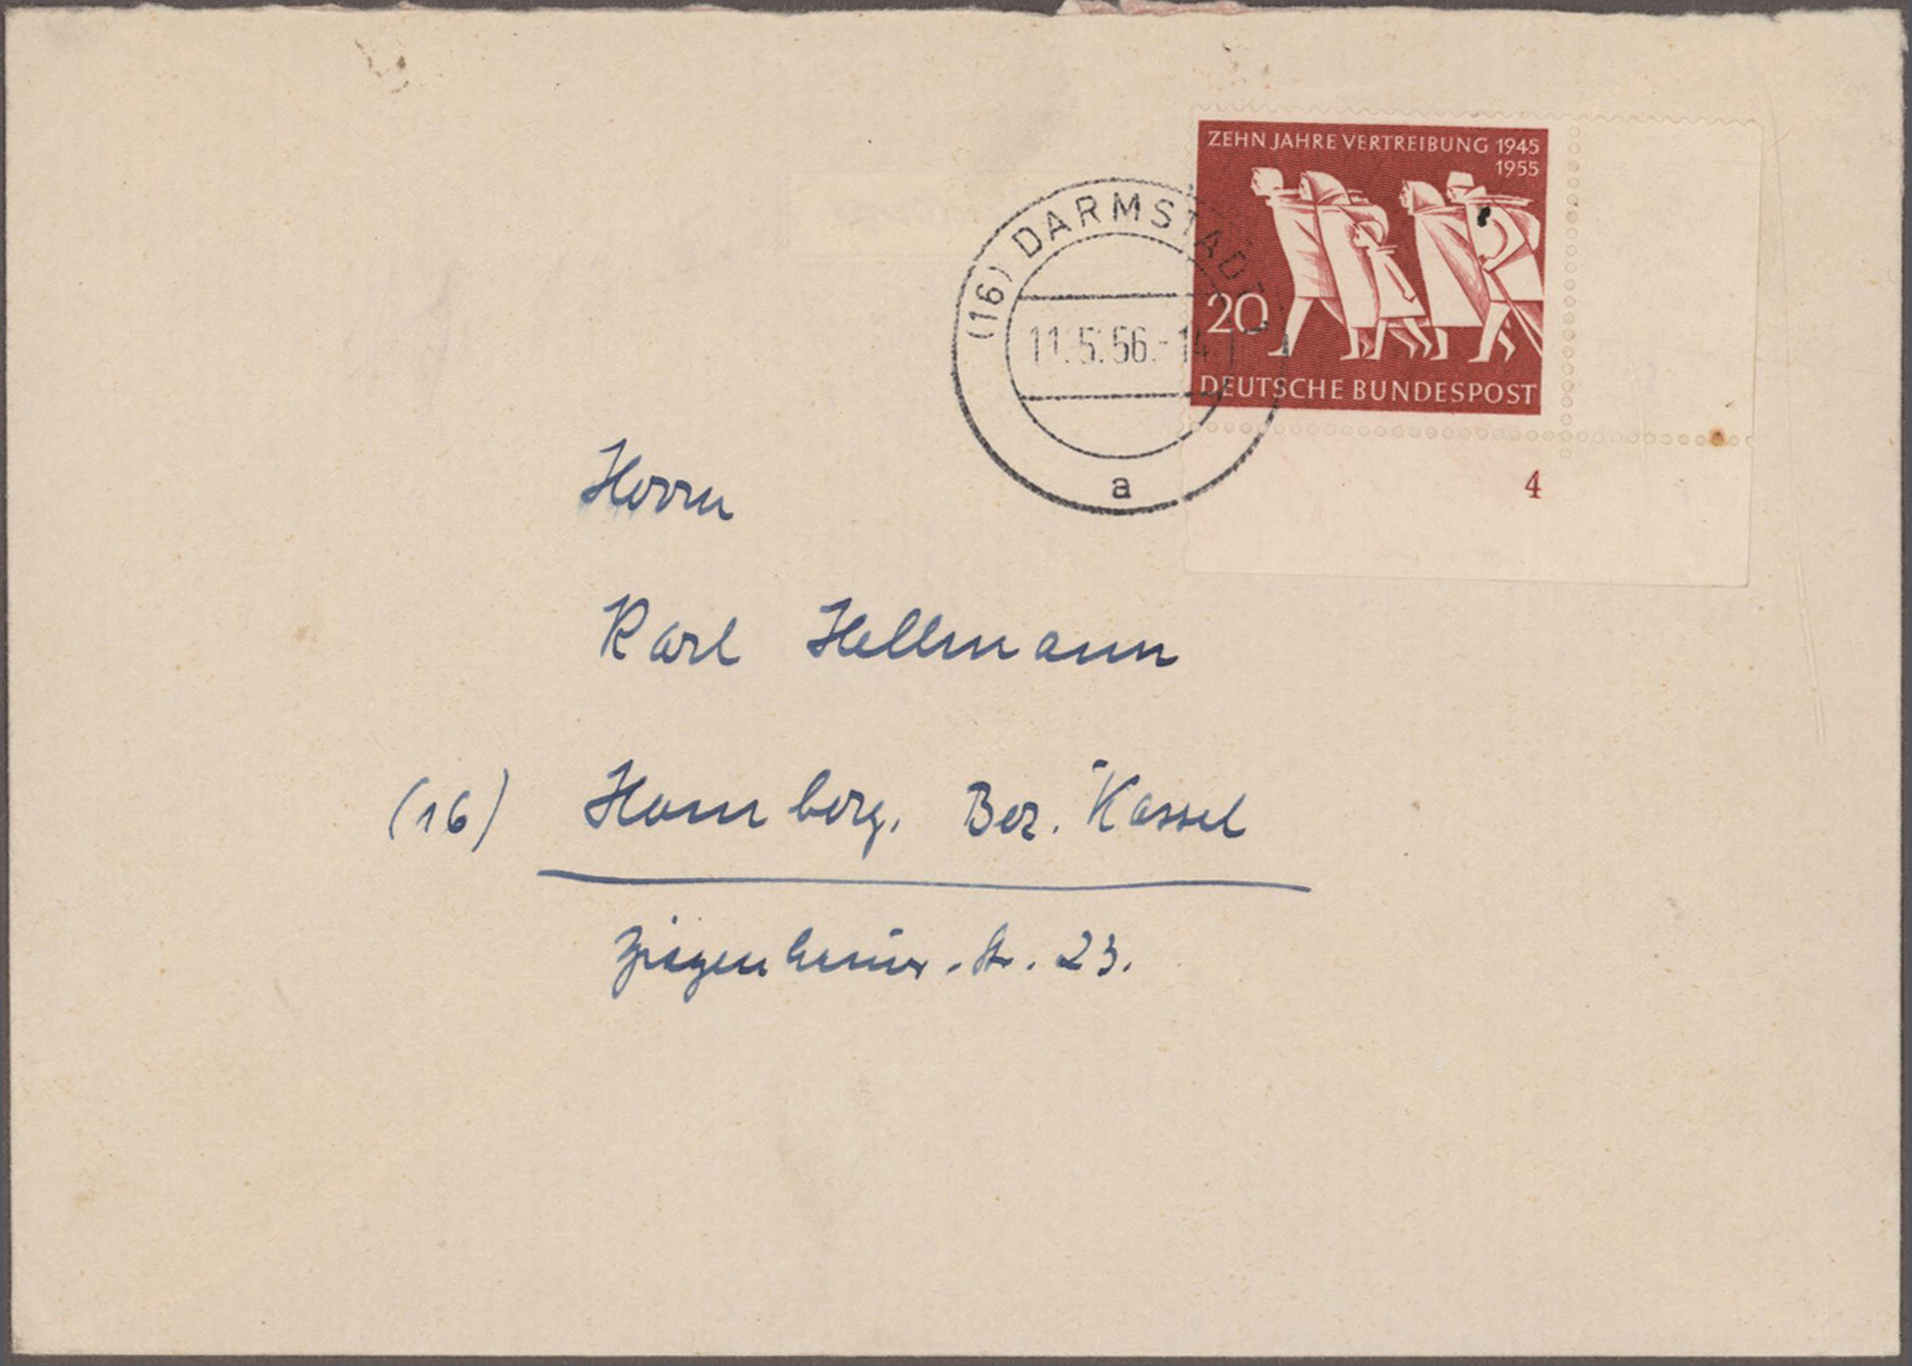 ZEHN JAHRE VERTREIBUNG 1945
1955
20
DEUTSCHE BUNDESPOST
4
(16) DARMSTADT
11.5.56.-14
a
Herrn
Karl Hellmann
(16) Homberg, Bez. Kassel
Ziegenhainer-Str. 23.